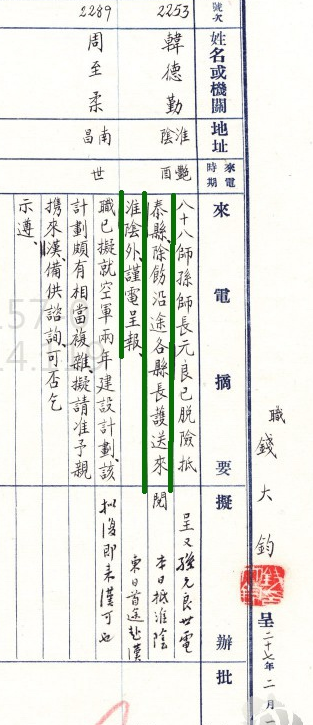 職 錢大鈞 呈 二十七年二月一
號次 姓名或機關 地址 來電時期 來電摘要 擬辦 批
2253
韓德勤
淮陰
艷酉
八十八師孫師長元良已脫險抵
泰縣、除飭沿途各縣長護送來
淮陰外、謹電呈報、
呈 又孫元良世電
閱 本日抵淮陰
東日首途赴漢
2289
周至柔
南昌
世
職已擬就空軍兩年建設計劃、該
計劃頗有相當複雜、擬請准予親
携來漢、備供諮詢、可否乞
示遵、
擬復即來漢可也